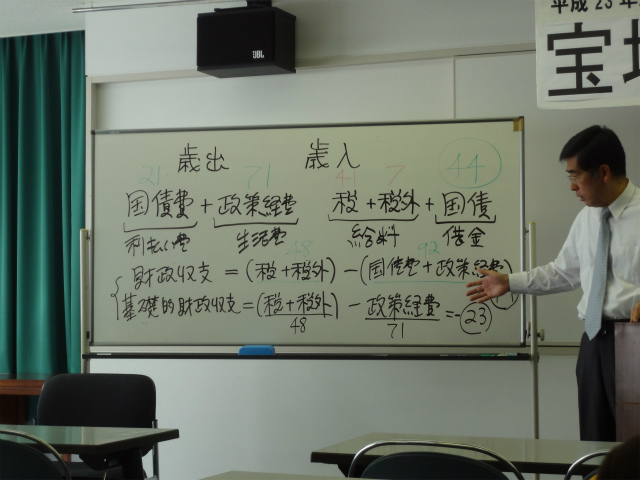 平成23年
宝
JBL
歳出 歳入
21 71 41 7 44
国債費 + 政策経費 税 + 税外 + 国債
利払い費 生活費 給料 借金
48 92
財政収支 = (税+税外) - (国債費 + 政策経費)
基礎的財政収支 = (税+税外) - 政策経費 = -23
48 71